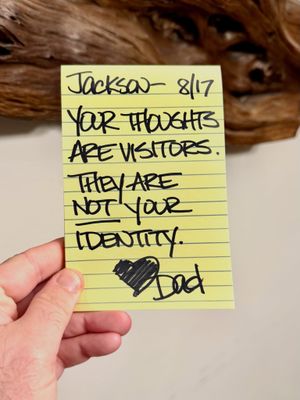 JACKSON— 8/17
YOUR THOUGHTS
ARE VISITORS.
THEY ARE
NOT YOUR
IDENTITY.
Dad